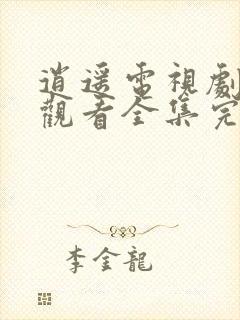 逍遥電視劇
觀看全集完
李金龍